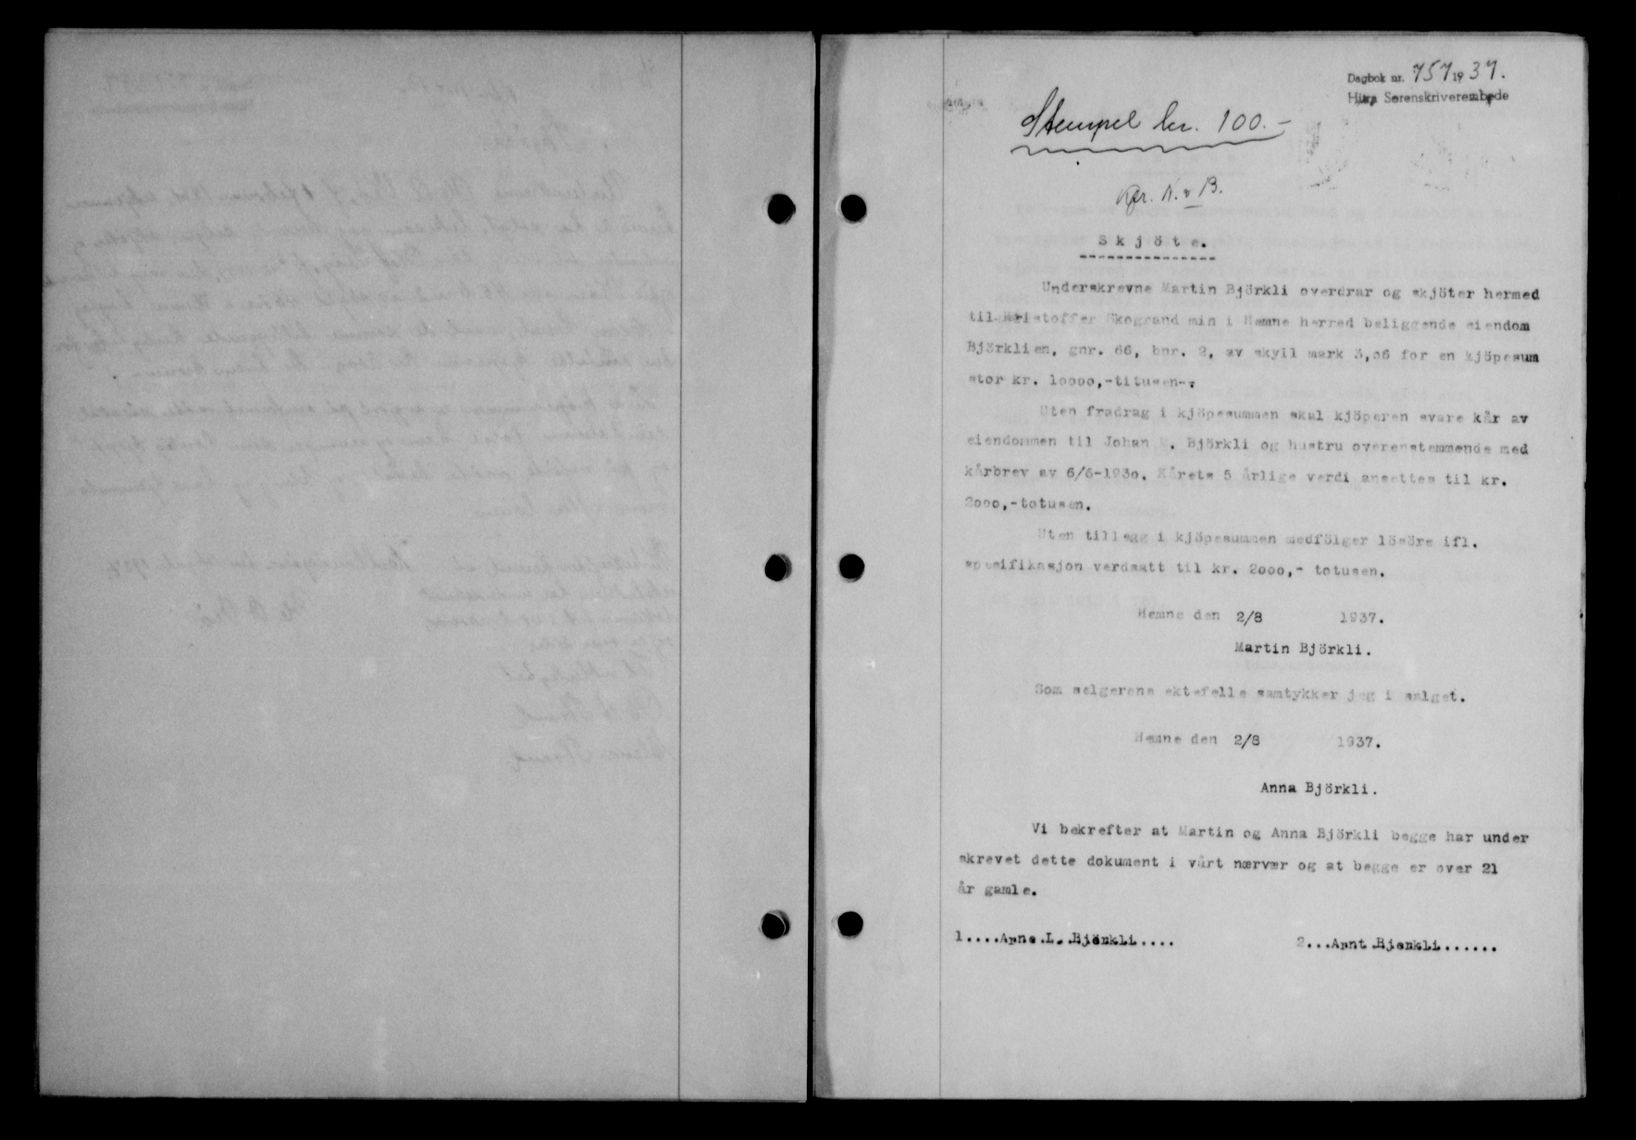 Dagbok nr. 757 1937.
Hitra Sorenskriverembede
Stempel kr. 100.-
Skjöte.
Underskrevne Martin Björkli overdrar og skjöter hermed
til Kristoffer Skogrand min i Hemne herred beliggende eiendom
Björklien, gnr. 66, bnr. 2, av skyll mark 3,06 for en kjöpesum
stor kr. 10000,-titusen-.
Uten fradrag i kjöpesummen skal kjöperen svare kår av
eiendommen til Johan Björkli og hustru overenstemmende med
kårbrev av 6/6-1930. Kårets 5 årlige verdi ansettes til kr.
2000,-totusen.
Uten tillegg i kjöpesummen medfölger lösöre ifl.
spesifikasjon verdsatt til kr. 2000,- totusen.
Hemne den 2/8 1937.
Martin Björkli.
Som selgerens ektefelle samtykker jeg i salget.
Hemne den 2/8 1937.
Anna Björkli.
Vi bekrefter at Martin og Anna Björkli begge har under
skrevet dette dokument i vårt nærvær og at begge er over 21
år gamle.
1....Arne.L..Björkli.... 2...Arnt.Bjørkli......